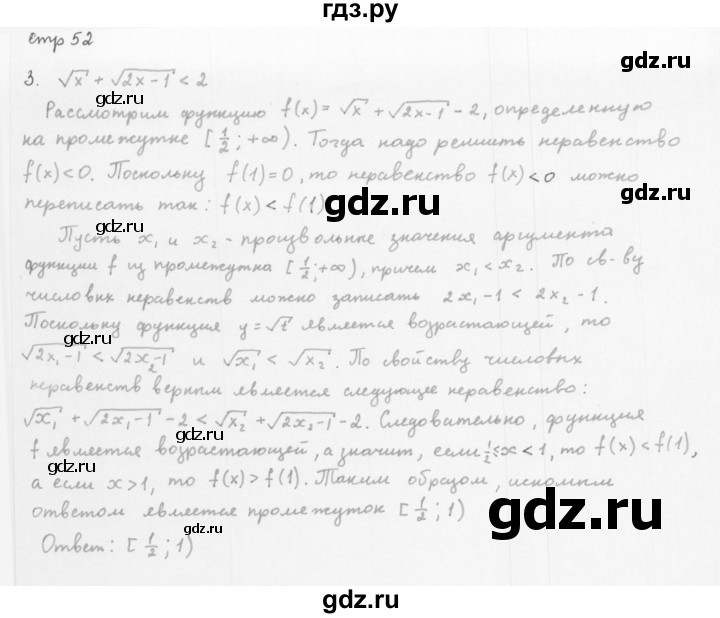 гдз.ру
стр 52
3. √x + √2x-1 < 2
Рассмотрим функцию f(x) = √x + √2x-1 - 2, определенную
на промежутке [1/2; +∞). Тогда надо решить неравенство
f(x) < 0. Поскольку f(1) = 0, то неравенство f(x) < 0 можно
переписать так: f(x) < f(1)
gdz.ru
Пусть x₁ и x₂ - произвольные значения аргумента
функции f из промежутка [1/2; +∞), причем x₁ < x₂. По св-ву
числовых неравенств можно записать 2x₁ - 1 < 2x₂ - 1.
Поскольку функция y = √t является возрастающей, то
√2x₁-1 < √2x₂-1 и √x₁ < √x₂. По свойству числовых
неравенств верным является следующее неравенство:
√x₁ + √2x₁-1 - 2 < √x₂ + √2x₂-1 - 2. Следовательно, функция
f является возрастающей, а значит, если 1/2 ≤ x < 1, то f(x) < f(1),
а если x > 1, то f(x) > f(1). Таким образом, искомым
ответом является промежуток [1/2; 1)
Ответ: [1/2; 1)
gdz.ru
gdz.ru
gdz.ru
gdz.ru
gdz.ru
gdz.ru
gdz.ru
gdz.ru
gdz.ru